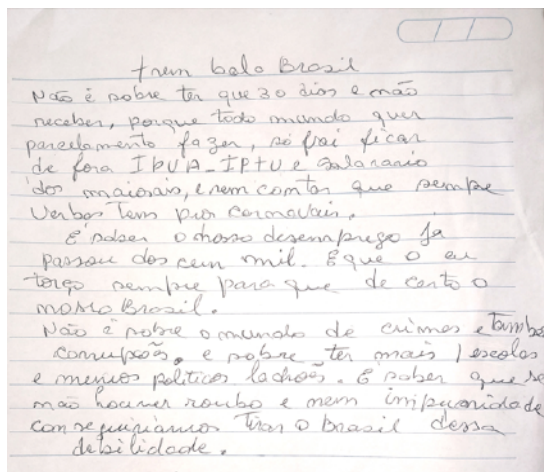 trem bala Brasil
Não é sobre ter que 30 dias e não
receber, porque todo mundo quer
parcelamento fazer, só frai ficar
de fora IPVA-IPTU e salarario
dos maiorais, e nem contar que sempre
verbas tem pros carnavais.
E saber o nosso desemprego ja
passou dos cem mil. E que o eu
torço sempre para que de certo o
nosso Brasil.
Não é sobre o mundo de crimes e també
corrupção. e sobre ter mais escolas
e menos politicos ladroẽs. E saber que se
não houver roubo e nem impuanidade
conseguiriamos tirar o Brasil dessa
debilidade.